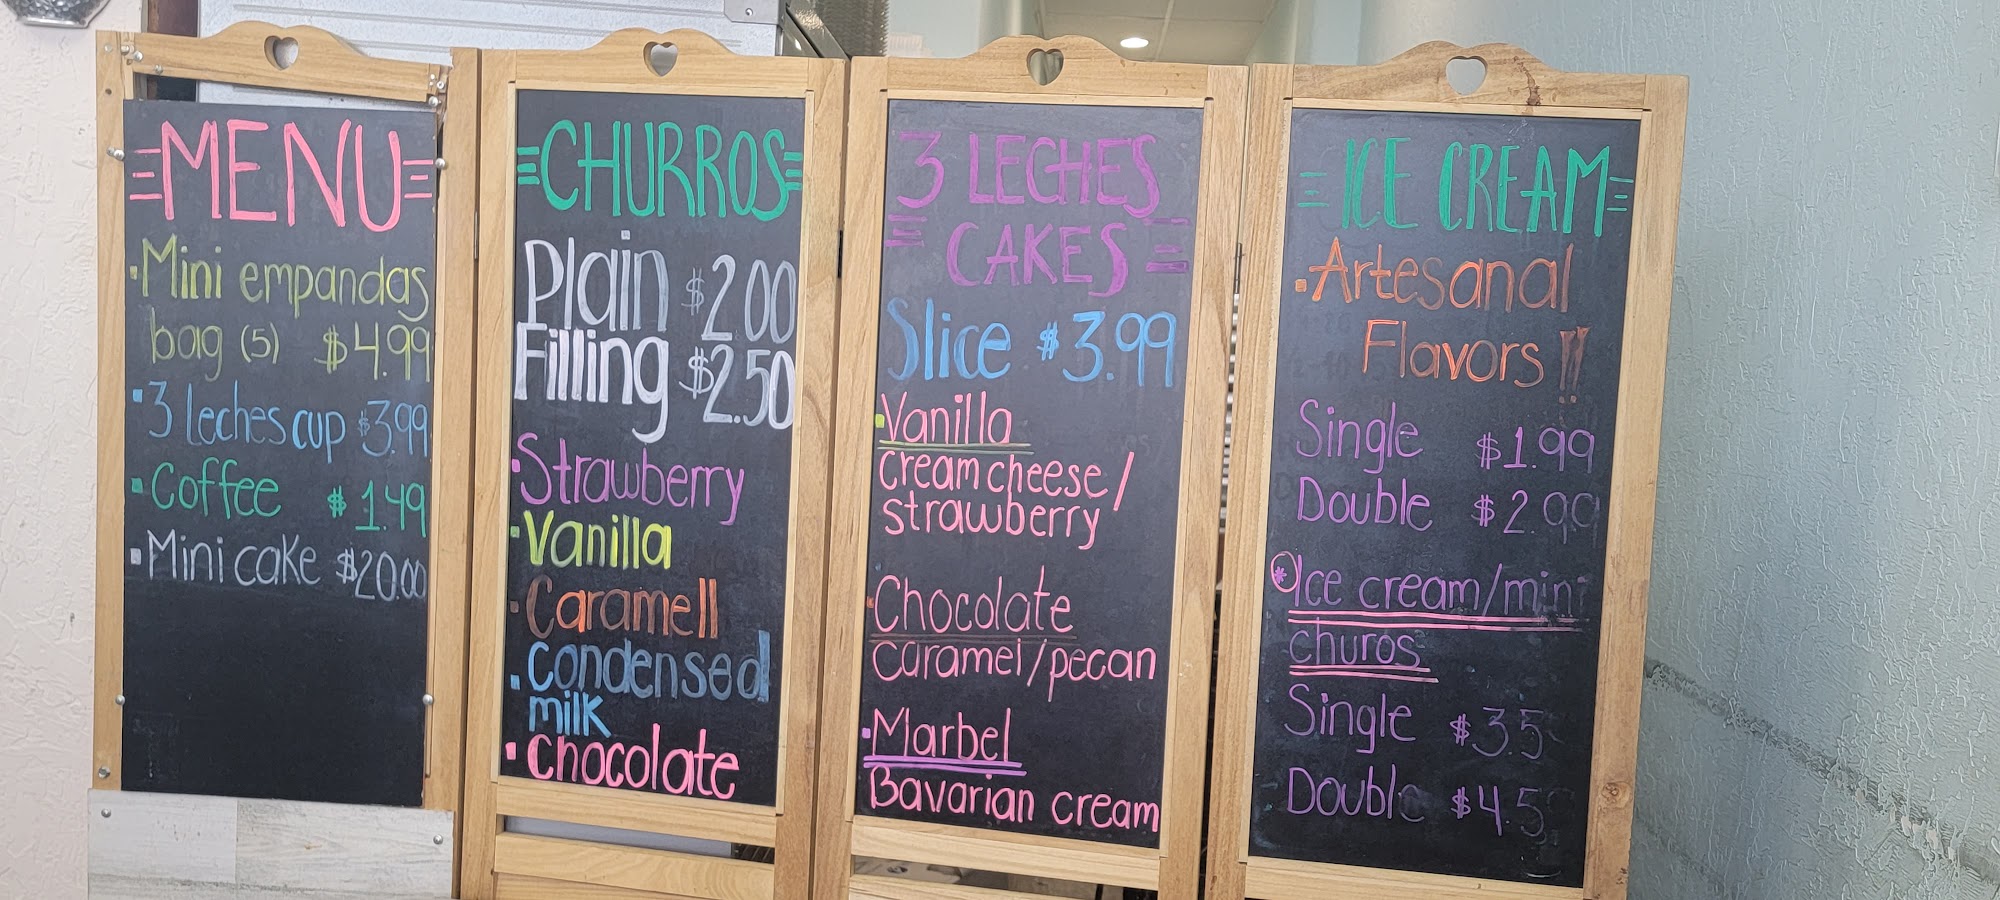 MENU
Mini empandas
bag (5) $4.99
3 leches cup $3.99
Coffee $1.49
Mini cake $20.00
CHURROS
Plain $2.00
Filling $2.50
Strawberry
Vanilla
Caramell
Condensed
milk
Chocolate
3 LECHES
CAKES
Slice $3.99
Vanilla
Cream cheese/
strawberry
Chocolate
Caramel/pecan
Marbel
Bavarian cream
ICE CREAM
Artesanal
Flavors!!
Single $1.99
Double $2.99
*Ice cream/mini
churos
Single $3.5
Double $4.5